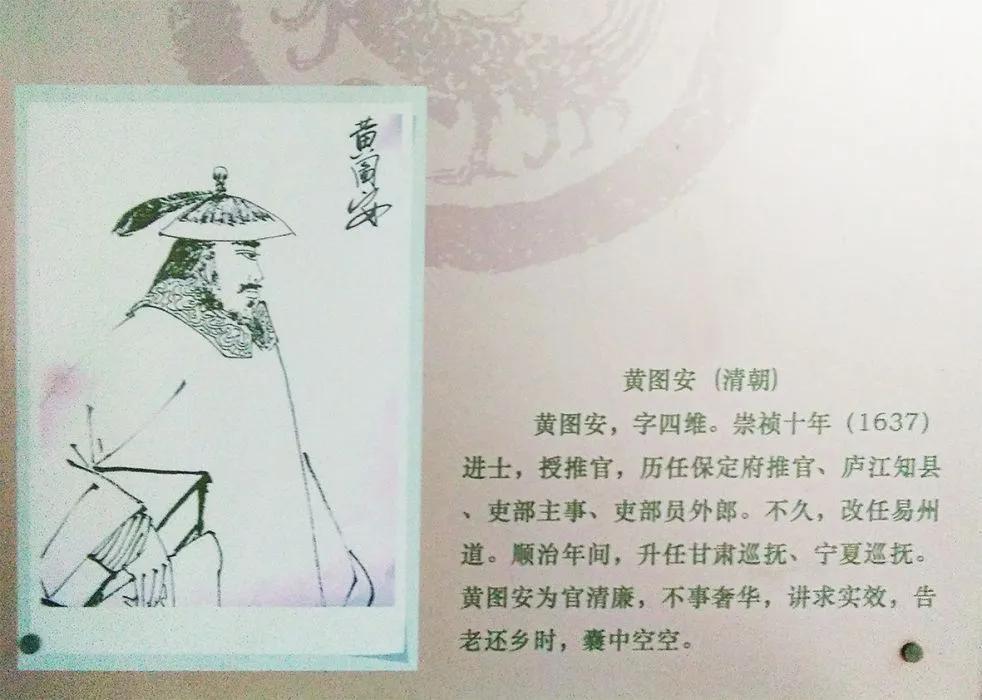 黄图安
黄图安（清朝）
黄图安，字四维。崇祯十年（1637）
进士，授推官，历任保定府推官、庐江知县
、吏部主事、吏部员外郎。不久，改任易州
道。顺治年间，升任甘肃巡抚、宁夏巡抚。
黄图安为官清廉，不事奢华，讲求实效，告
老还乡时，囊中空空。